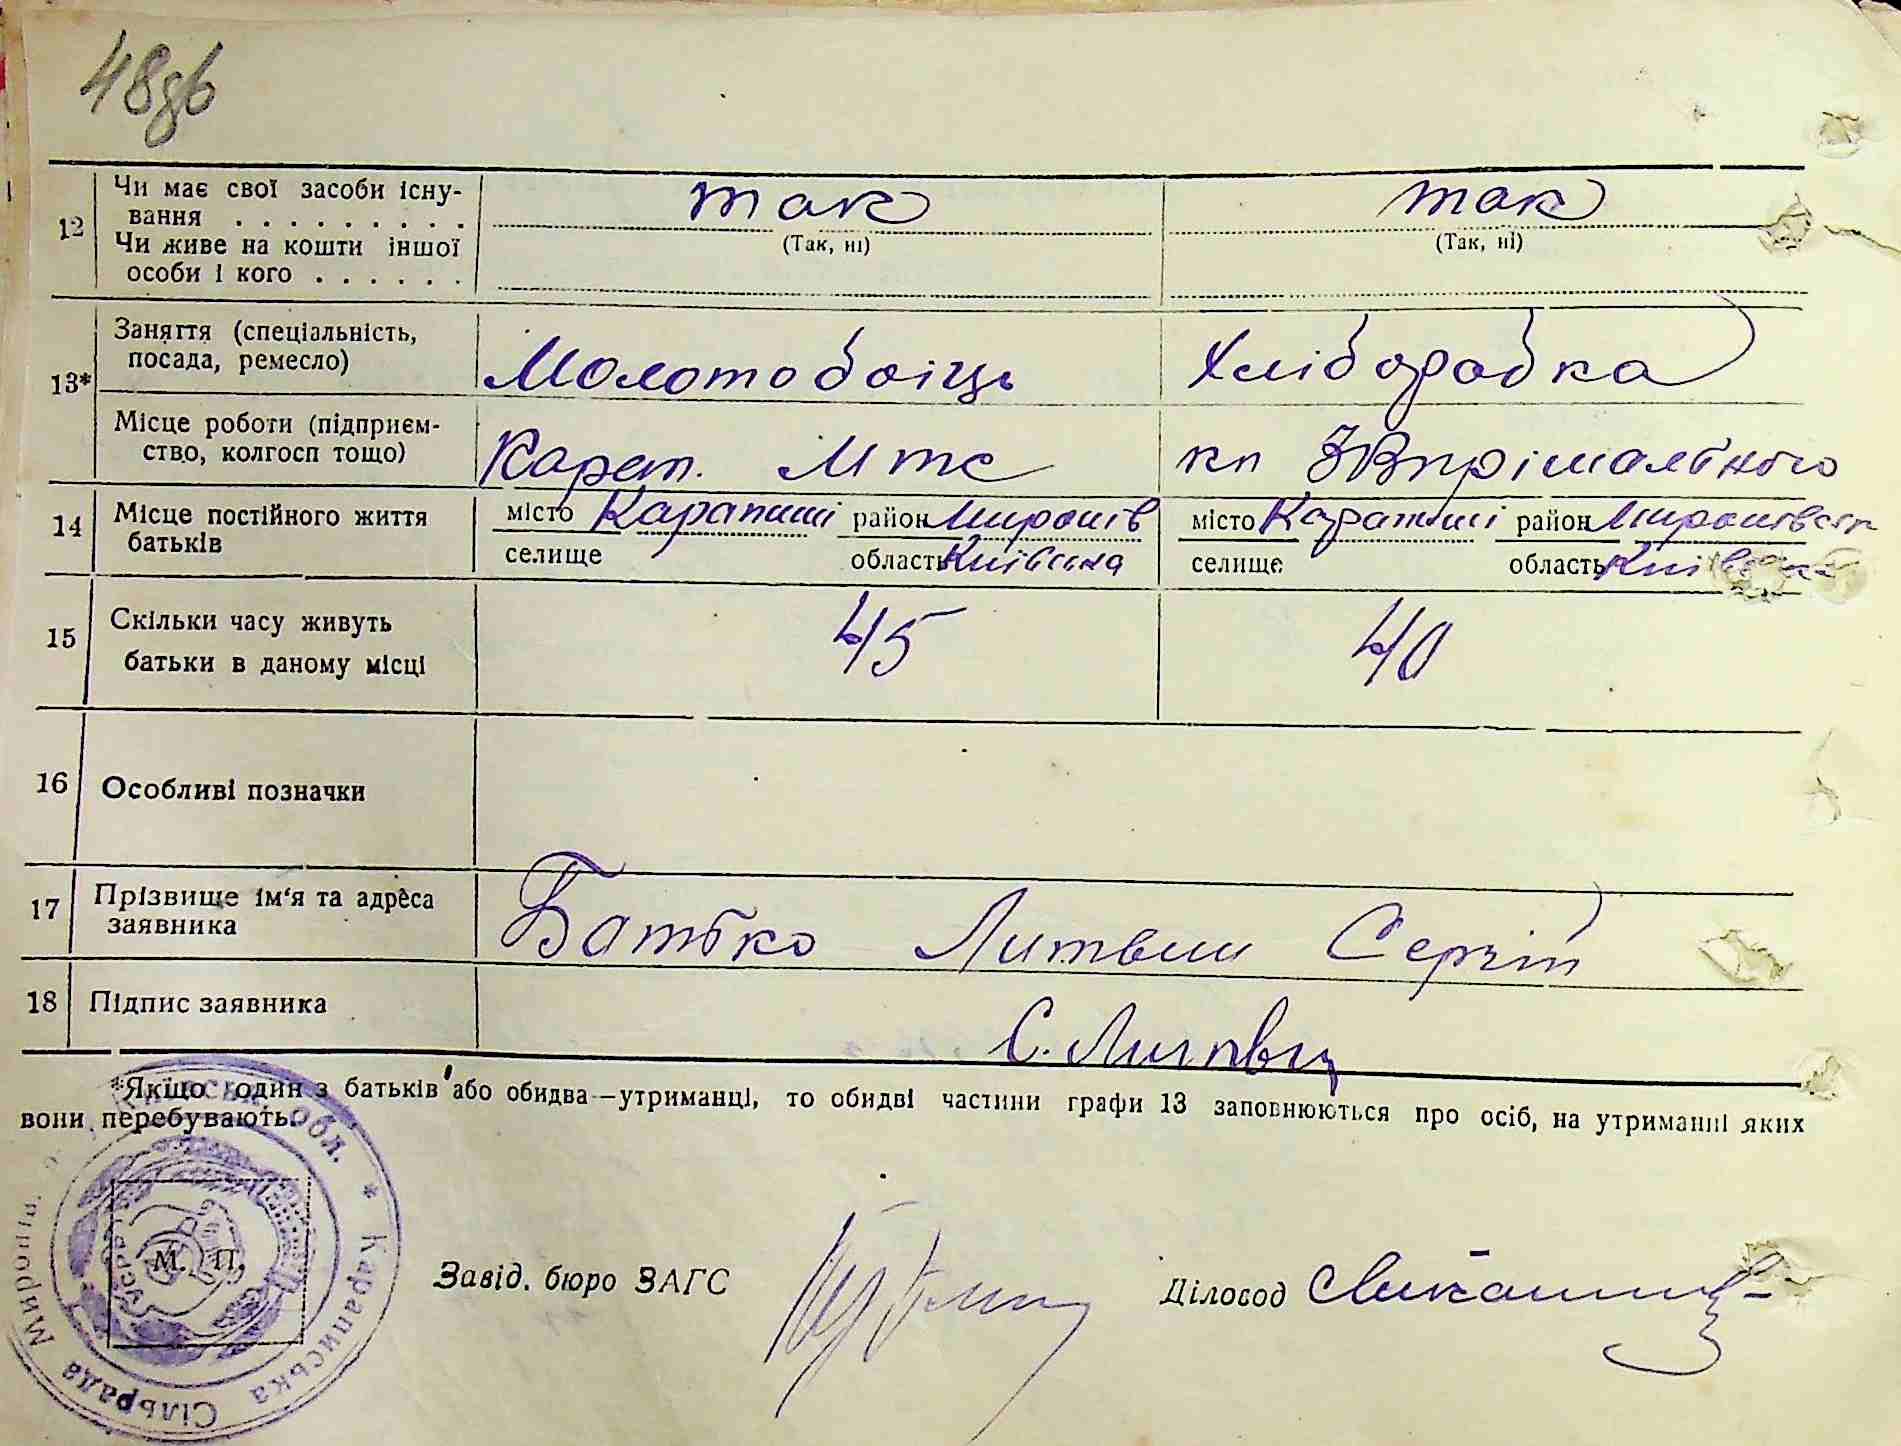 48зв
12 Чи має свої засоби існу- так так
вання . . . . . . . . . (Так, ні) (Так, ні)
Чи живе на кошти іншої
особи і кого . . . . . .
13* Заняття (спеціальність, Молотобоіць Хліборобка
посада, ремесло)
Місце роботи (підприєм- Карап. Мтс кп
ство, колгосп тощо)
14 Місце постійного життя місто Карапиші район Миронів місто Карапиші район Миронівськ
батьків селище область Київська селище область Київська
15 Скільки часу живуть 45 40
батьки в даному місці
16 Особливі позначки
17 Прізвище ім'я та адреса Батько Литвин Сергій
заявника
18 Підпис заявника С. Литвин
*Якщо один з батьків або обидва—утриманці, то обидві частини графи 13 заповнюються про осіб, на утриманні яких
вони перебувають.
обл. * Караписька Сільрада Миронів.
УСРР
М. П.
Завід. бюро ЗАГС Діловод